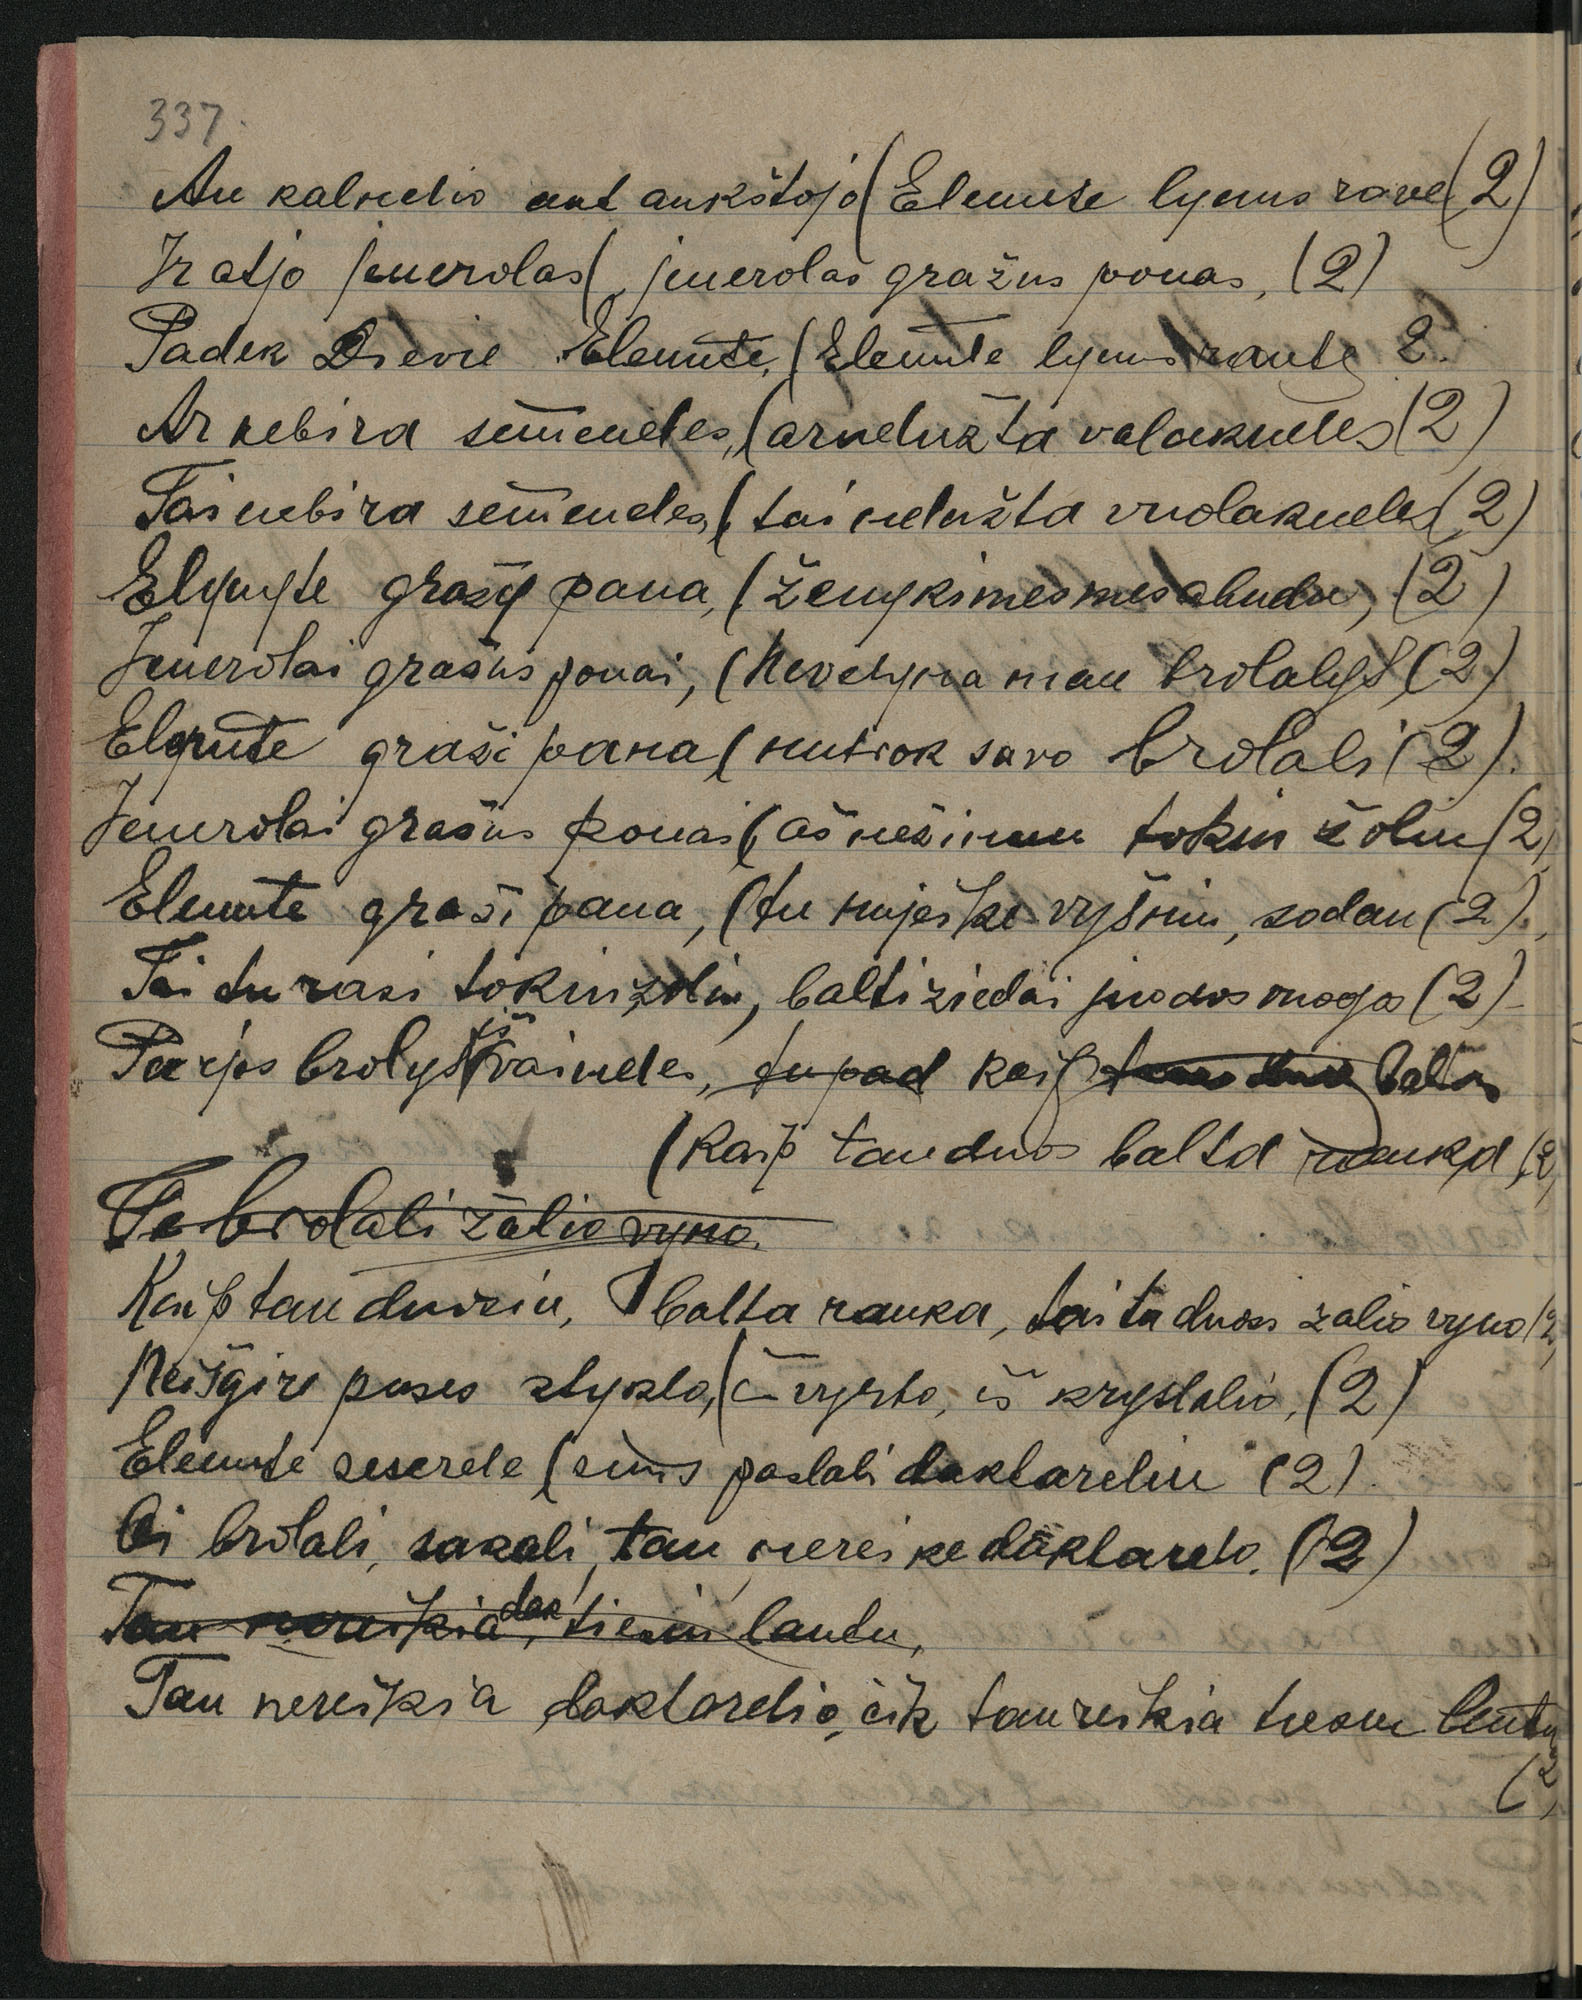 337.
An kalnelio ant aukštojo (Elenute lynus rove (2)
Ir atjo jenerolas (jenerolas gražus ponas, (2)
Padek Dievie Elenute, (Elenute lynus raute 2.
Ar nebira semeneles, (ar nelužta valakneles (2)
Tai nebira semeneles, (tai nelužta vuolakneles (2)
Elynyte gražy pana, (ženykimes mes abudu, (2)
Jenerolai gražus ponai, (Nevelyna man brolalys, (2)
Elynute graži pana (nutrok savo brolali (2).
Jenerolai gražus ponai (aš nežinau tokiu žoliu (2)
Elenute graži pana, (tu nuješko vyšniu, sodan (2).
Tai tu rasi tokiu žoliu, balti ziedai juodos uogos (2)
Parjos brolys iš vaineles, tupad kaip balta
(Kaip tau duos balta ranka, (2)
Te brolali žalio vyno.
Kaip tau duosiu, balta ranka, tai ta duosi zalio vyno (2)
Neišgire puses styklo, (č vyrto, iš krystolio, (2)
Elenute seserele (siuns paslali daktareliu (2).
Oi brolali, sakali, tau nereike daktarelo. (2)
Tau nereikia dak, tiesiu lantu,
Tau nereikia daktorelio, čik tau reikia tiesiu lentu
(2)